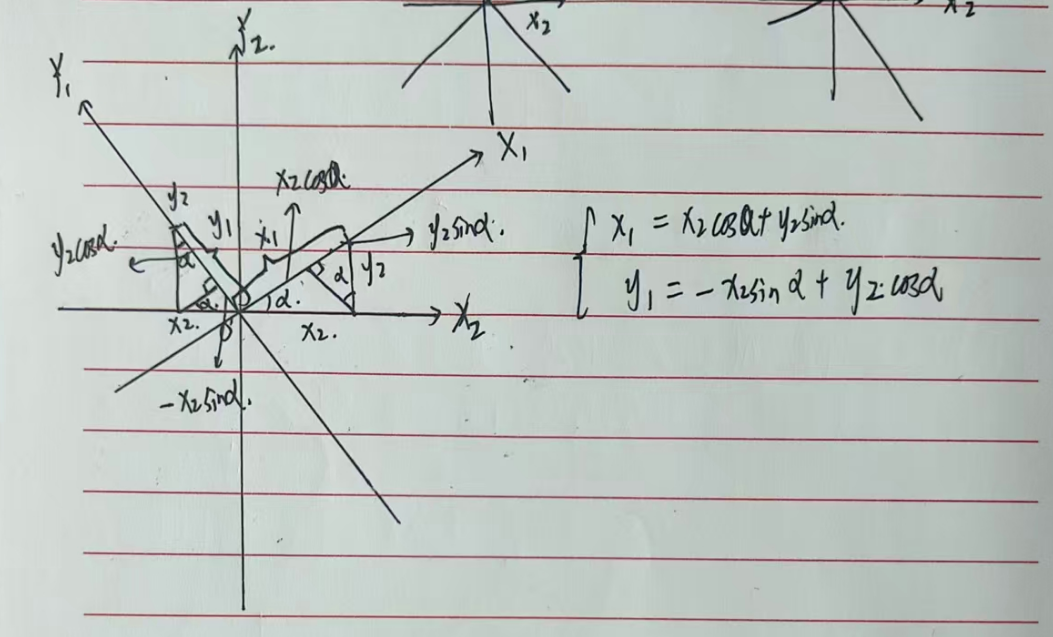 x₂
x₂
Y₂.
Y₁
X₁
x₂cosα.
y₂
y₁
x₁
y₂sinα.
y₂cosα.
α
α
y₂
α.
α.
x₂.
x₂.
X₂
-x₂sinα.
x₁ = x₂cosα + y₂sinα.
y₁ = -x₂sinα + y₂cosα